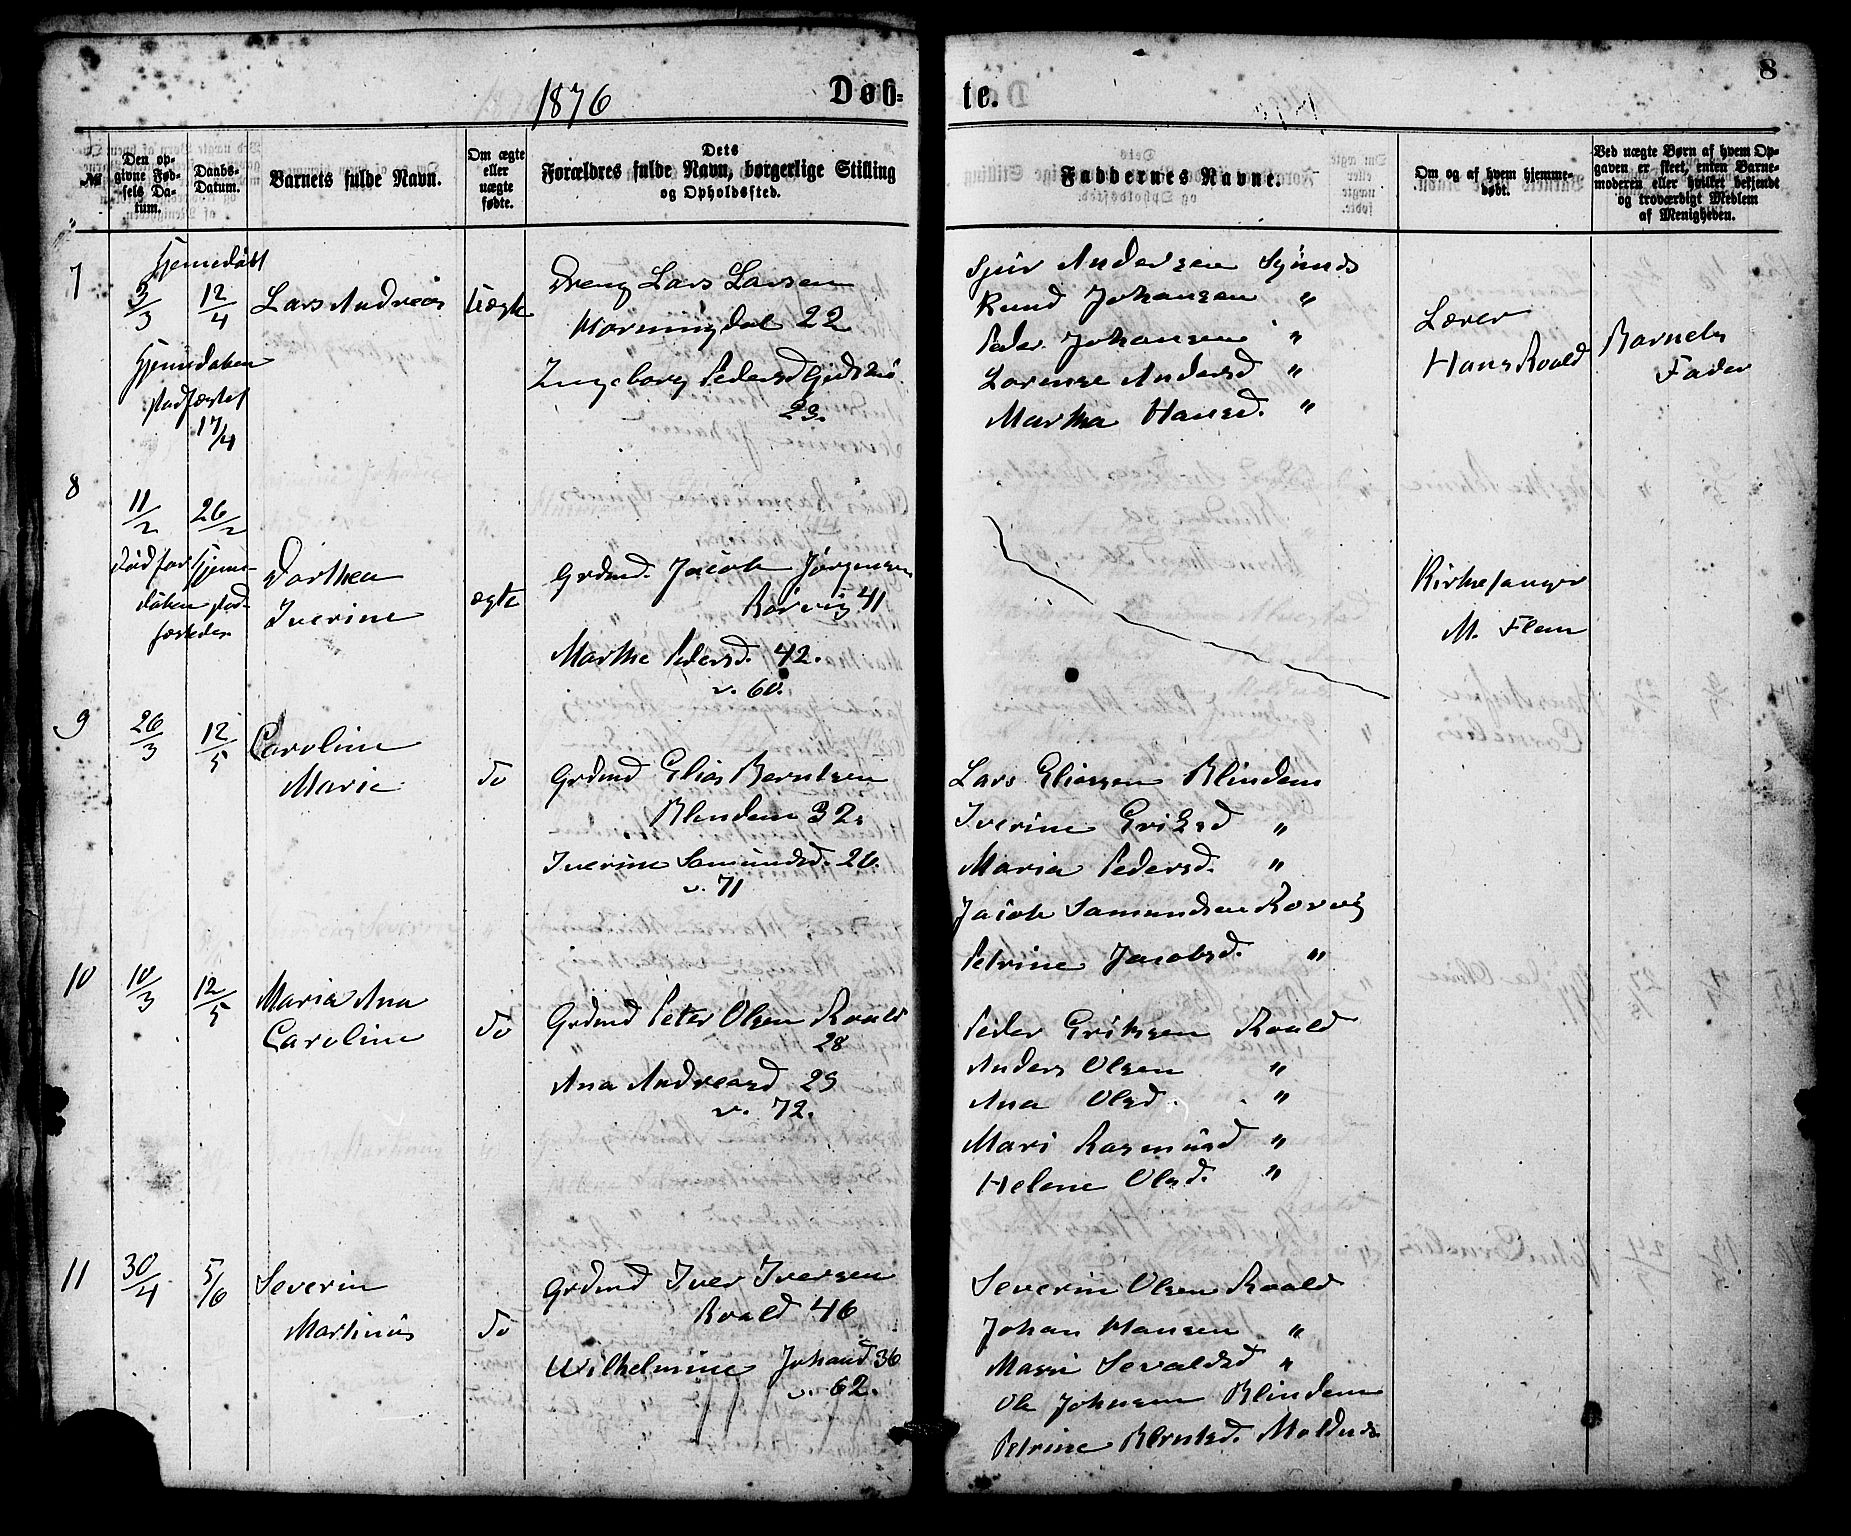 8
1876
Døb-
te.
№
Den op-
givne Fød-
sels Da-
tum.
Daabs-
Datum.
Barnets fulde Navn.
Om ægte
eller
uægte
fødte.
Dets
Forældres fulde Navn, borgerlige Stilling
og Opholdssted.
Faddernes Navne.
Om og af hvem hjemme-
døbt.
Ved uægte Børn af hvem Op-
gaven er skeet, enten Barne-
moderen eller hvilket bekjendt
og troværdigt Medlem
af Menigheden.
7
Hjemmedøbt
3/3
12/4
Lars Andreas
Uægte
Dreng Lars Larsen
Horningdal 22
Ingeborg Pedersd
23.
Hjemmedaben
stadfæstet
17/4
Sjur Andersen Synnes
Knud Johansen "
Peder Johansen "
Lorense Andersd "
Martha Hansd. "
Lærer
Hans Roald
Barnets
Fader
8
11/2
26/2
død før Hjemme-
daben stad-
fæstedes
Dorthea
Iverine
ægte
Grdmd. Jacob Jørgensen
Rørvig 41
Marthe Pedersd. 42.
v. 60.
Kirkesanger
M. Flem
9
26/3
12/5
Caroline
Marie
do
Grdmd Elias Berntsen
Blindem 32.
Iverine Samundsd. 26.
v. 71
Lars Eliassen Blindem
Iverine Eriksd "
Maria Pedersd. "
Jacob Samundsen Rørvig
Petrine Jacobsd. "
10
10/3
12/5
Maria Ana
Caroline
do
Grdmd Peter Olsen Roald
28
Ana Andreasd 25
v. 72.
Peder Eriksen Roald
Anders Olsen "
Ana Olsd. "
Mari Rasmusd "
Helene Olsd. "
11
30/4
5/6
Severin
Martinus
do
Grdmd Iver Iversen
Roald 46
Wilhelmine Johansd 36
v. 62.
Severin Olsen Roald
Johan Hansen "
Massi Sevaldsd "
Ole Johnsen Blindem
Petrine Berntsd. Moldnes